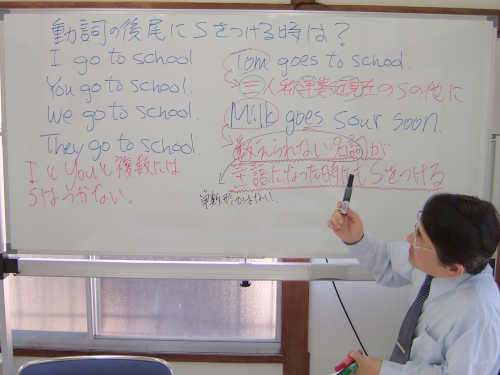 動詞の後尾にSをつける時は？
I go to school.
You go to school.
We go to school.
They go to school.
IとYouと複数には
Sはつかない。
Tom goes to school.
三人称単数現在のSの他に
Milk goes sour soon.
数えられない名詞が
主語になった時にもSをつける